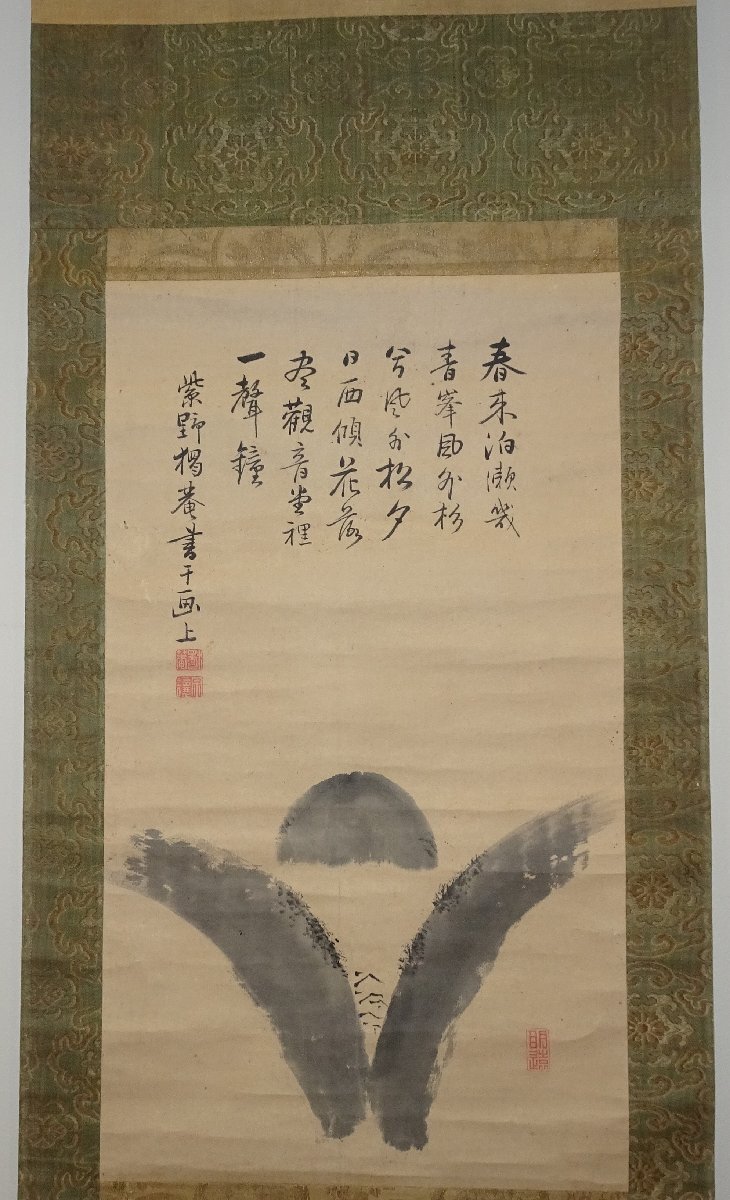 春来泊瀬幾
青峯風外松
兮風外松夕
日西傾花落
处觀音堂裡
一聲鐘
紫野獨菴書于画上